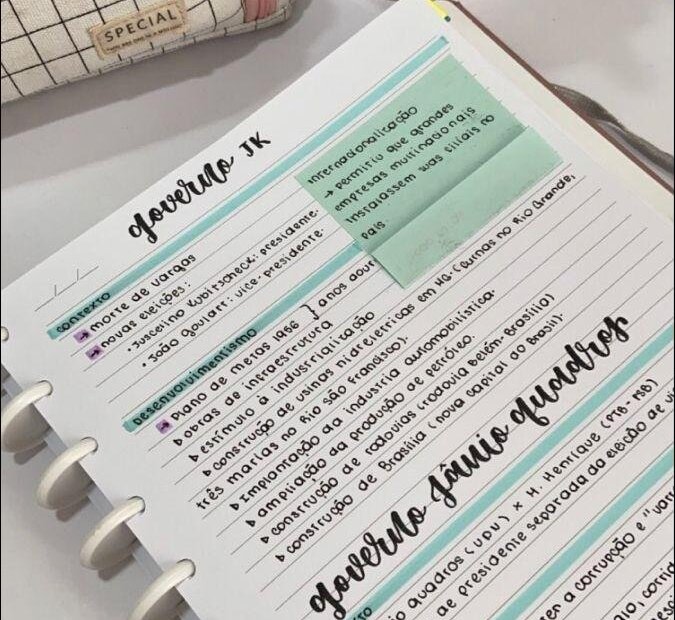 SPECIAL
governo JK
internacionalização
→ permitiu que grandes
empresas multinacionais
instalassem suas filiais no
país
contexto
→ morte de vargas
→ novas eleições:
• Juscelino Kubitscheck: presidente.
• João Goulart: vice-presidente.
Desenvolvimentismo
→ Plano de metas 1956 } anos
▷ obras de infraestrutura
▷ estímulo à industrialização
▷ construção de usinas hidrelétricas em MG. (furnas no Rio Grande,
três marias no Rio São Francisco).
▷ Implantação da industria automobilística.
▷ ampliação da produção de petróleo.
▷ construção de rodovias (rodovia Belém-Brasília)
▷ construção de Brasília (nova capital do Brasil).
governo Jânio quadros
quadros (UDN) x H. Henrique (PTB-PSD)
de presidente separada da eleição de
a corrupção e